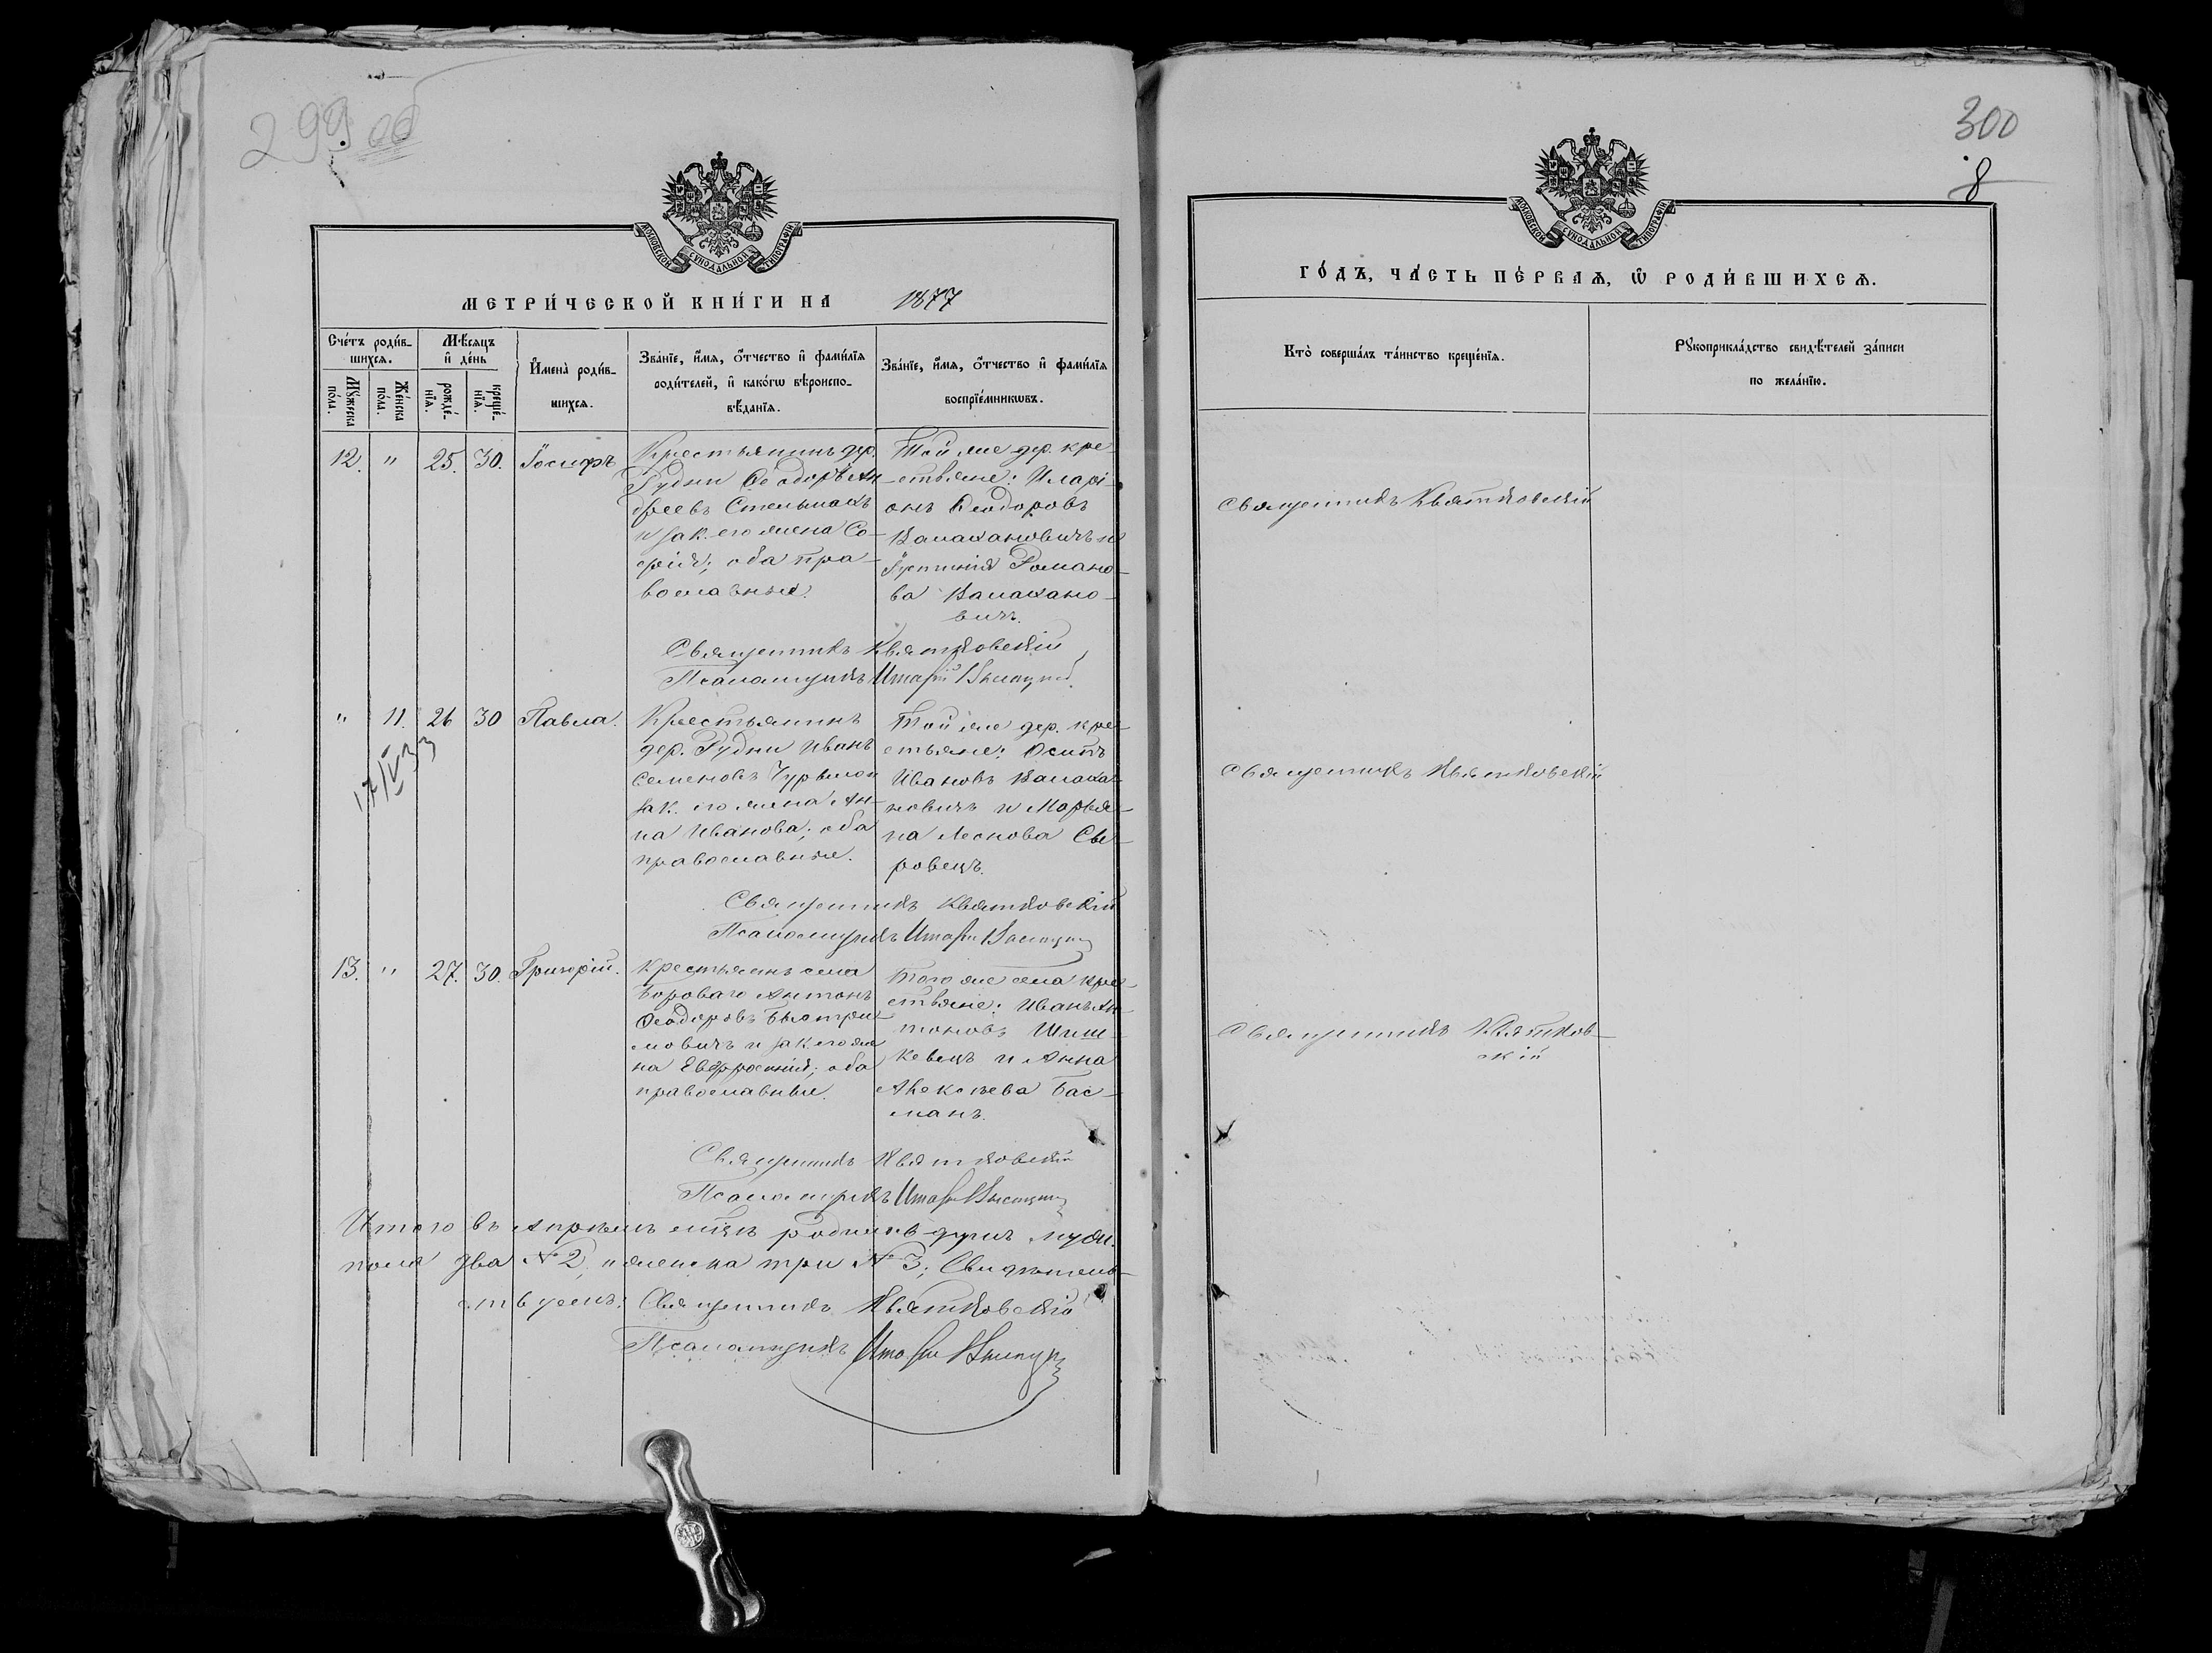 299 об
300
8
МОСКОВСКОЙ СѴНОДАЛЬНОЙ ТИПОГРАФІИ
МЕТРИ́ЧЕСКОЙ КНИ́ГИ НА 1877
Сче́тъ роди́в-
шихсѧ.
Мꙋ́жеска
по́ла.
Же́нска
по́ла.
Мѣ́сѧцъ
и҆ де́нь
рожде́-
нїѧ.
креще́-
нїѧ.
И҆мена̀ роди́в-
шихсѧ.
Зва́нїе, и҆́мѧ, ѻ҆́тчество и҆ фами́лїѧ
роди́телей, и҆ како́гѡ вѣроиспо-
вѣ́данїѧ.
Зва́нїе, и҆́мѧ, ѻ҆́тчество и҆ фами́лїѧ
воспрїе́мникѡвъ.
12. " 25. 30. Іосифъ
Крестьянинъ дер.
Рудни Ѳеодоръ Ан-
дреевъ Стельмахъ
и зак. его жена Со-
фія; оба пра-
вославные.
Той же дер. кре-
стьяне: Иларі-
онъ Ѳеодоровъ
Валахановичъ и
Іустинія Романо-
ва Валахано-
вичъ.
Священникъ Квятковскій
Псаломщикъ
" 11. 26 30 Павла.
17/IV 33
Крестьянинъ
дер. Рудни Иванъ
Семеновъ
зак. его жена Ан-
на Иванова; оба
православные.
Той же дер. кре-
стьяне: Осипъ
Ивановъ Валаха-
новичъ и Марья-
на Леонова Сы-
ровецъ.
Священникъ Квятковскій
Псаломщикъ
13. " 27. 30. Григорій.
Крестьянинъ села
Бороваго Антонъ
Ѳеодоровъ
мовичъ и зак. его же-
на Евфросинія; оба
православные.
Того же села кре-
стьяне: Иванъ Ан-
тоновъ Шиш-
кевецъ и Анна
Алексѣева Бас-
манъ.
Священникъ Квятковскій
Псаломщикъ
Итого въ Апрѣлѣ м-цѣ родилось душъ муж.
пола два № 2, женска три № 3; Свидѣтель-
ствуемъ: Священникъ Квятковскій
Псаломщикъ
МОСКОВСКОЙ СѴНОДАЛЬНОЙ ТИПОГРАФІИ
ГО́ДЪ, ЧА́СТЬ ПЕ́РВАѦ, Ѽ РОДИ́ВШИХСѦ.
Кто̀ соверша́лъ та́инство креще́нїѧ.
Рꙋкоприкла́дство свидѣ́телей за́писи
по жела́нїю.
Священникъ Квятковскій
Священникъ Квятковскій
Священникъ Квятков-
скій